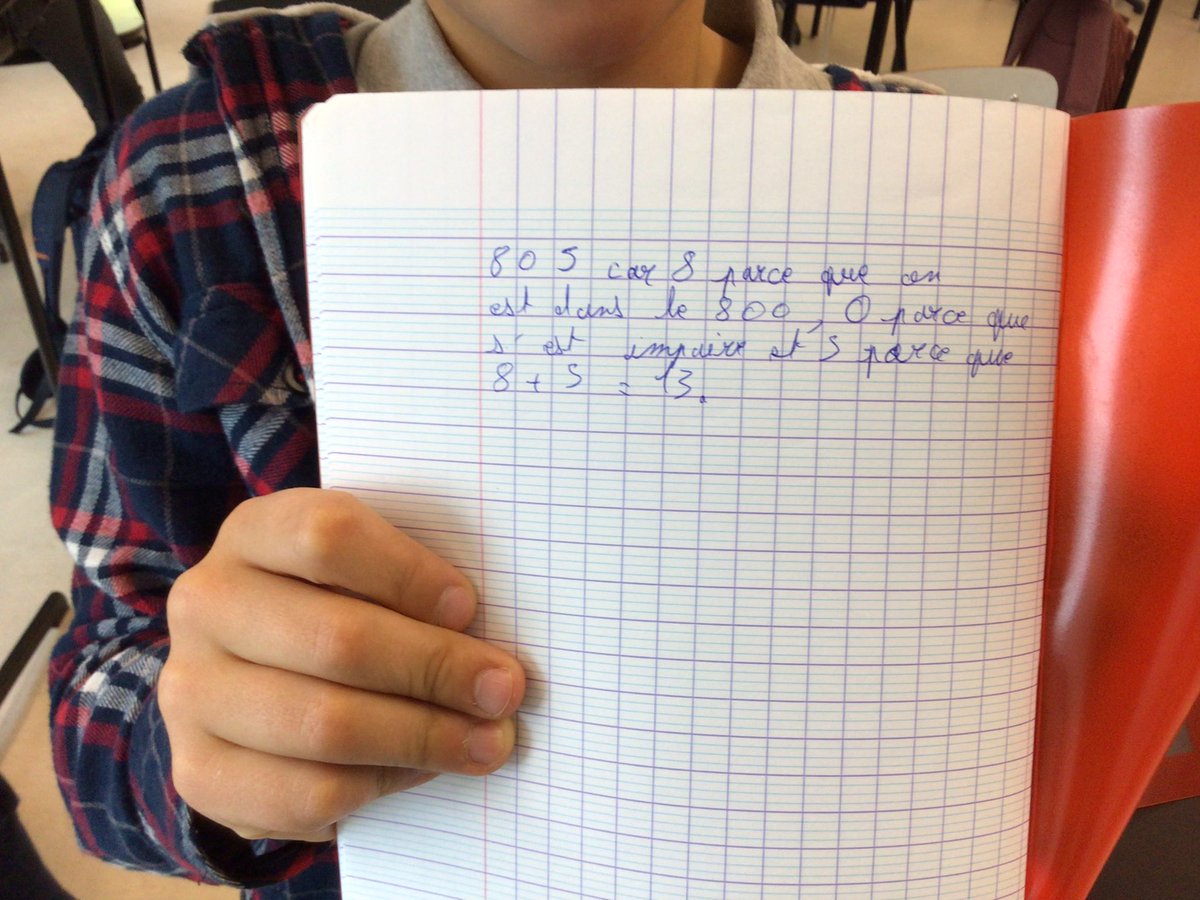 805 car 8 parce que on
est dans le 800, 0 parce que
s'est impaire et 5 parce que
8 + 5 = 13.